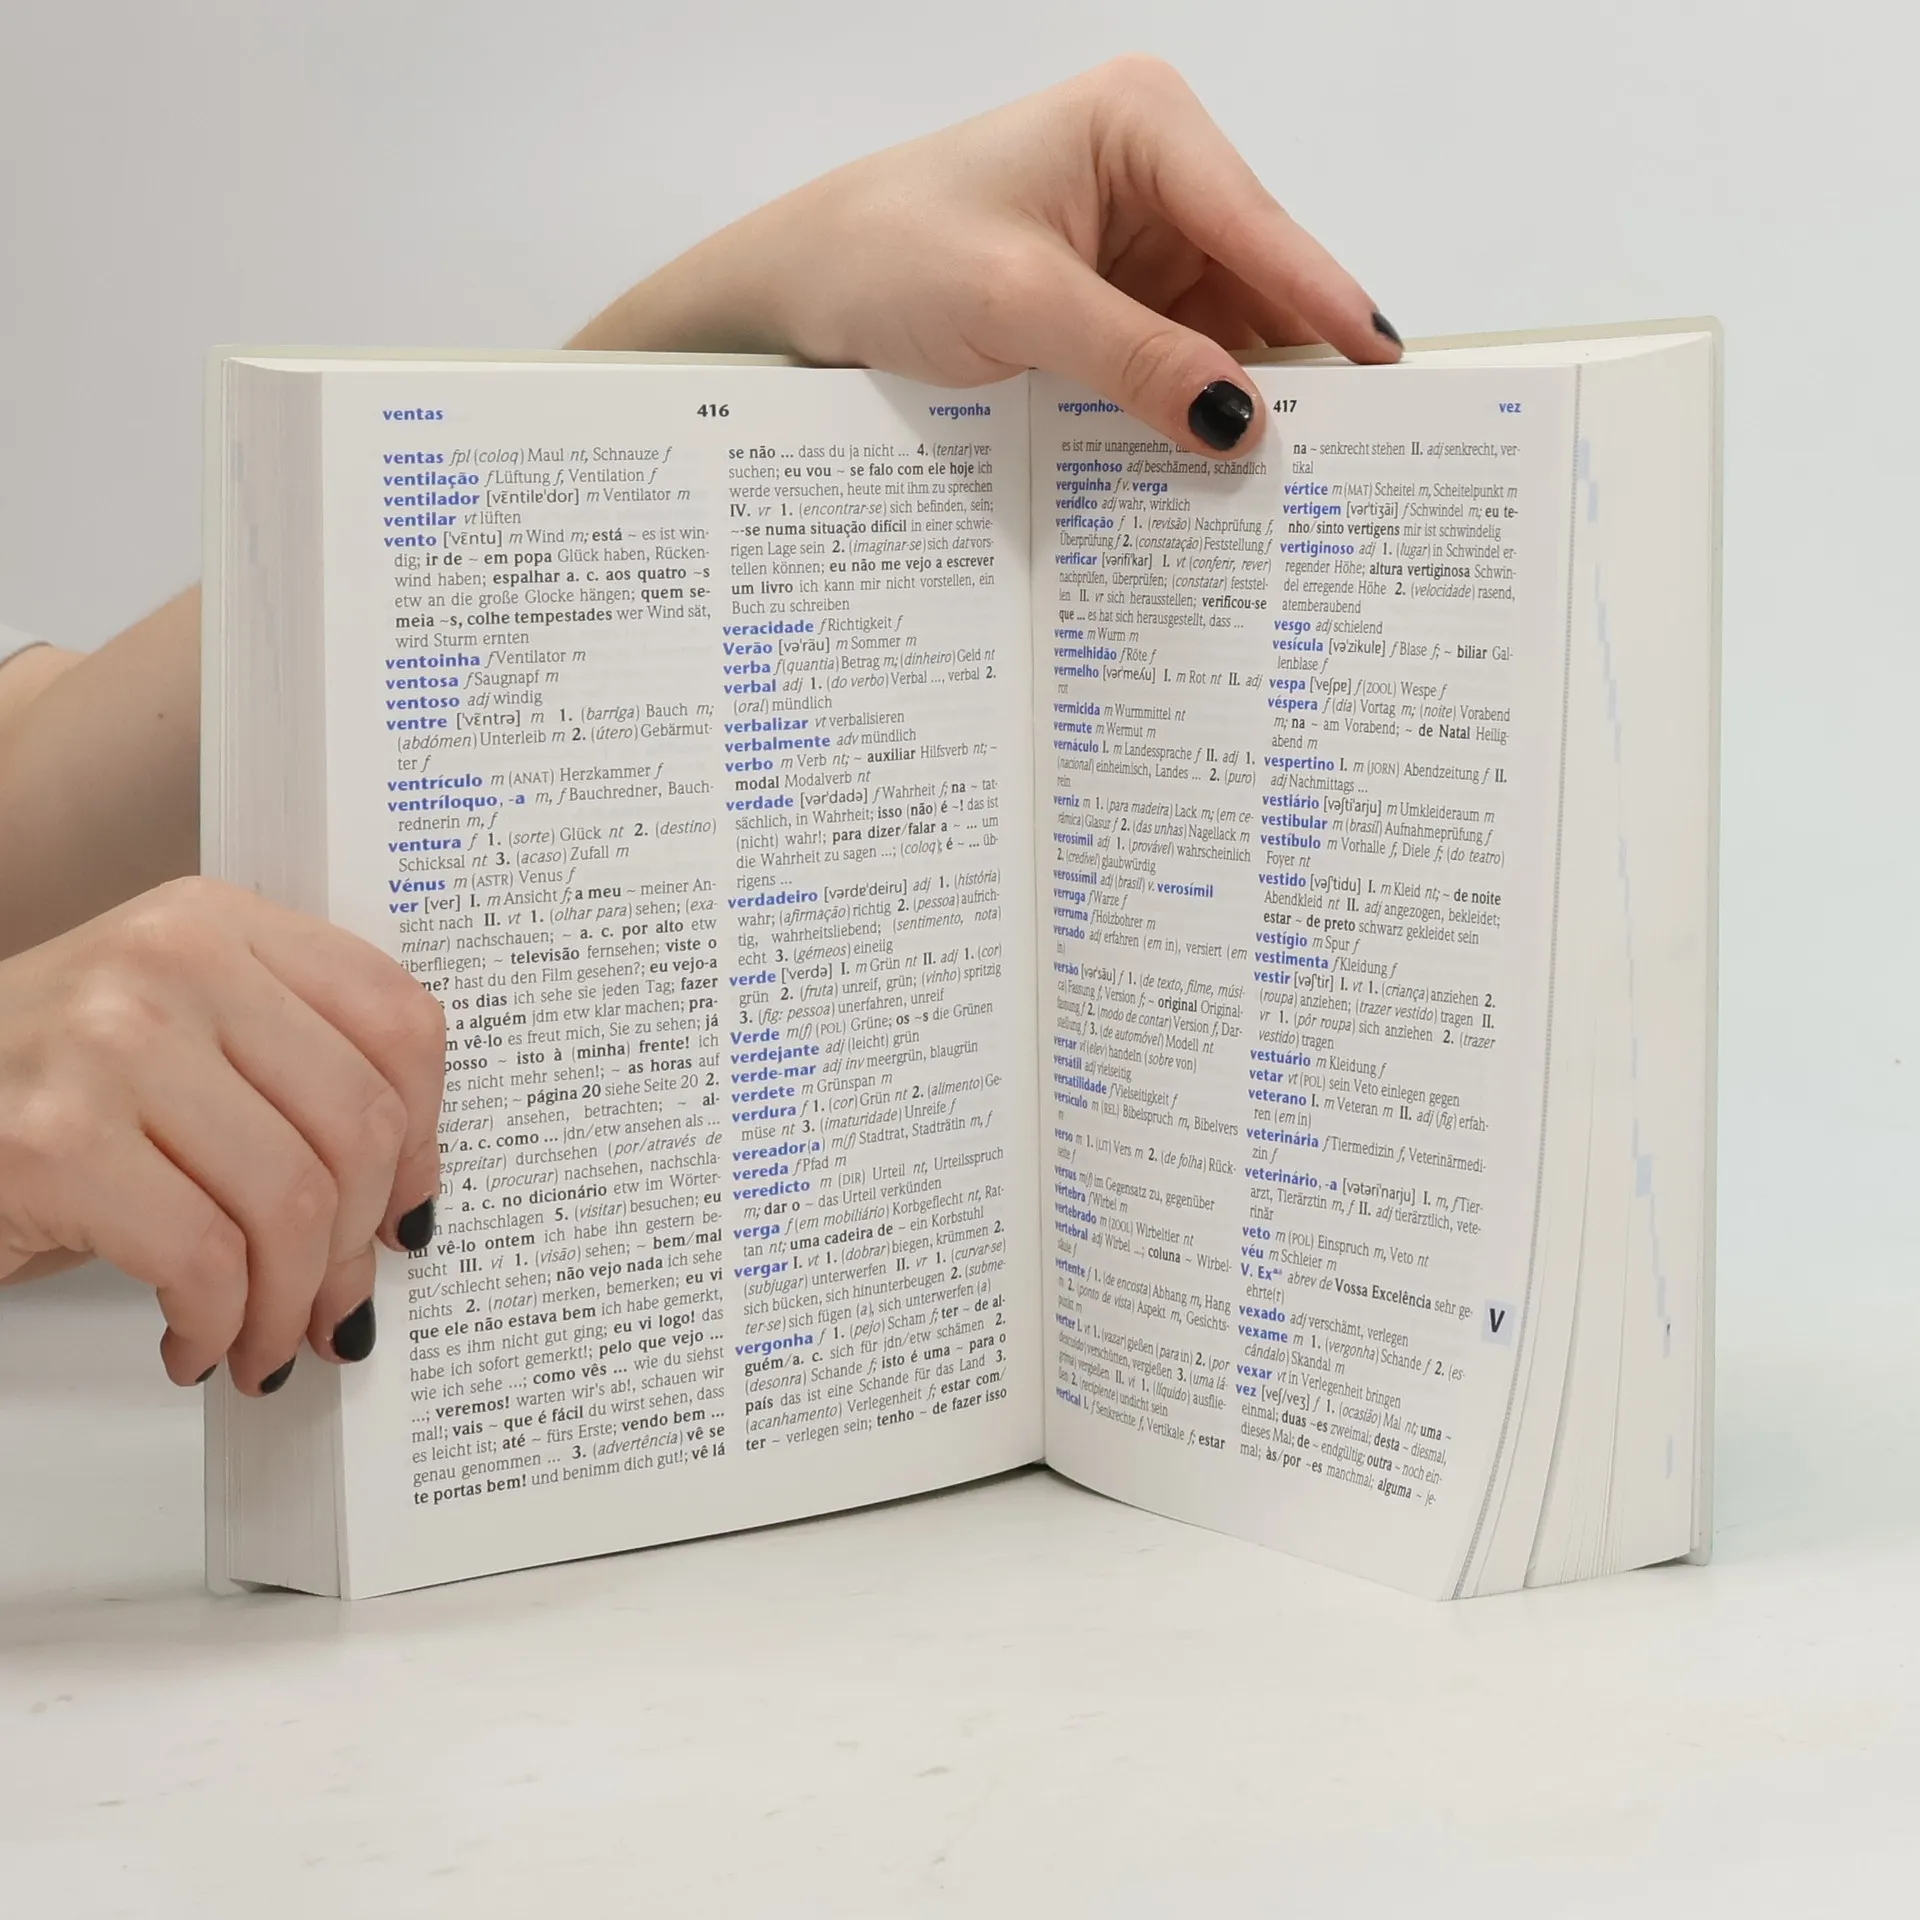 ventas 416 vergonha
ventas fpl (coloq) Maul nt, Schnauze f
ventilação f Lüftung f, Ventilation f
ventilador [vɛ̃ntile'dor] m Ventilator m
ventilar vt lüften
vento ['vɛ̃ntu] m Wind m; está ~ es ist win-
dig; ir de ~ em popa Glück haben, Rücken-
wind haben; espalhar a. c. aos quatro ~s
etw an die große Glocke hängen; quem se-
meia ~s, colhe tempestades wer Wind sät,
wird Sturm ernten
ventoinha f Ventilator m
ventosa f Saugnapf m
ventoso adj windig
ventre ['vɛ̃ntrə] m 1. (barriga) Bauch m;
(abdómen) Unterleib m 2. (útero) Gebärmut-
ter f
ventrículo m (ANAT) Herzkammer f
ventríloquo, -a m, f Bauchredner, Bauch-
rednerin m, f
ventura f 1. (sorte) Glück nt 2. (destino)
Schicksal nt 3. (acaso) Zufall m
Vénus m (ASTR) Venus f
ver [ver] I. m Ansicht f; a meu ~ meiner An-
sicht nach II. vt 1. (olhar para) sehen; (exa-
minar) nachschauen; ~ a. c. por alto etw
überfliegen; ~ televisão fernsehen; viste o
me? hast du den Film gesehen?; eu vejo-a
os dias ich sehe sie jeden Tag; fazer
a alguém jdm etw klar machen; pra-
vê-lo es freut mich, Sie zu sehen; já
posso ~ isto à (minha) frente! ich
es nicht mehr sehen!; ~ as horas auf
hr sehen; ~ página 20 siehe Seite 20 2.
siderar) ansehen, betrachten; ~ al-
m/a. c. como ... jdn/etw ansehen als ...
espreitar) durchsehen (por/através de
h) 4. (procurar) nachsehen, nachschla-
~ a. c. no dicionário etw im Wörter-
h nachschlagen 5. (visitar) besuchen; eu
fui vê-lo ontem ich habe ihn gestern be-
sucht III. vi 1. (visão) sehen; ~ bem/mal
gut/schlecht sehen; não vejo nada ich sehe
nichts 2. (notar) merken, bemerken; eu vi
que ele não estava bem ich habe gemerkt,
dass es ihm nicht gut ging; eu vi logo! das
habe ich sofort gemerkt!; pelo que vejo ...
wie ich sehe ...; como vês ... wie du siehst
...; veremos! warten wir's ab!, schauen wir
mal!; vais ~ que é fácil du wirst sehen, dass
es leicht ist; até ~ fürs Erste; vendo bem ...
genau genommen ... 3. (advertência) vê se
te portas bem! und benimm dich gut!; vê lá
se não ... dass du ja nicht ... 4. (tentar) ver-
suchen; eu vou ~ se falo com ele hoje ich
werde versuchen, heute mit ihm zu sprechen
IV. vr 1. (encontrar-se) sich befinden, sein;
~-se numa situação difícil in einer schwie-
rigen Lage sein 2. (imaginar-se) sich dat vors-
tellen können; eu não me vejo a escrever
um livro ich kann mir nicht vorstellen, ein
Buch zu schreiben
veracidade f Richtigkeit f
Verão [və'rãu] m Sommer m
verba f (quantia) Betrag m; (dinheiro) Geld nt
verbal adj 1. (do verbo) Verbal ..., verbal 2.
(oral) mündlich
verbalizar vt verbalisieren
verbalmente adv mündlich
verbo m Verb nt; ~ auxiliar Hilfsverb nt; ~
modal Modalverb nt
verdade [vər'dadə] f Wahrheit f; na ~ tat-
sächlich, in Wahrheit; isso (não) é ~! das ist
(nicht) wahr!; para dizer/falar a ~ ... um
die Wahrheit zu sagen ...; (coloq); é ~ ... üb-
rigens ...
verdadeiro [vərde'deiru] adj 1. (história)
wahr; (afirmação) richtig 2. (pessoa) aufrich-
tig, wahrheitsliebend; (sentimento, nota)
echt 3. (gémeos) eineiig
verde ['verdə] I. m Grün nt II. adj 1. (cor)
grün 2. (fruta) unreif, grün; (vinho) spritzig
3. (fig: pessoa) unerfahren, unreif
Verde m(f) (POL) Grüne; os ~s die Grünen
verdejante adj (leicht) grün
verde-mar adj inv meergrün, blaugrün
verdete m Grünspan m
verdura f 1. (cor) Grün nt 2. (alimento) Ge-
müse nt 3. (imaturidade) Unreife f
vereador(a) m(f) Stadtrat, Stadträtin m, f
vereda f Pfad m
veredicto m (DIR) Urteil nt, Urteilsspruch
m; dar o ~ das Urteil verkünden
verga f (em mobiliário) Korbgeflecht nt, Rat-
tan nt; uma cadeira de ~ ein Korbstuhl
vergar I. vt 1. (dobrar) biegen, krümmen 2.
(subjugar) unterwerfen II. vr 1. (curvar-se)
sich bücken, sich hinunterbeugen 2. (subme-
ter-se) sich fügen (a), sich unterwerfen (a)
vergonha f 1. (pejo) Scham f; ter ~ de al-
guém/a. c. sich für jdn/etw schämen 2.
(desonra) Schande f; isto é uma ~ para o
país das ist eine Schande für das Land 3.
(acanhamento) Verlegenheit f; estar com/
ter ~ verlegen sein; tenho ~ de fazer isso
vergonhos 417 vez
es ist mir unangenehm,
vergonhoso adj beschämend, schändlich
verguinha f v. verga
verídico adj wahr, wirklich
verificação f 1. (revisão) Nachprüfung f,
Überprüfung f 2. (constatação) Feststellung f
verificar [vərifi'kar] I. vt (conferir, rever)
nachprüfen, überprüfen; (constatar) feststel-
len II. vr sich herausstellen; verificou-se
que ... es hat sich herausgestellt, dass ...
verme m Wurm m
vermelhidão f Röte f
vermelho [vər'meʎu] I. m Rot nt II. adj
rot
vermicida m Wurmmittel nt
vermute m Wermut m
vernáculo I. m Landessprache f II. adj 1.
(nacional) einheimisch, Landes ... 2. (puro)
rein
verniz m 1. (para madeira) Lack m; (em ce-
râmica) Glasur f 2. (das unhas) Nagellack m
verosímil adj 1. (provável) wahrscheinlich
2. (credível) glaubwürdig
verossímil adj (brasil) v. verosímil
verruga f Warze f
verruma f Holzbohrer m
versado adj erfahren (em in), versiert (em
in)
versão [vər'sãu] f 1. (de texto, filme, músi-
ca) Fassung f, Version f; ~ original Original-
fassung f 2. (modo de contar) Version f, Dar-
stellung f 3. (de automóvel) Modell nt
versar vi (elev) handeln (sobre von)
versátil adj vielseitig
versatilidade f Vielseitigkeit f
versículo m (REL) Bibelspruch m, Bibelvers
m
verso m 1. (LIT) Vers m 2. (de folha) Rück-
seite f
versus m(f) im Gegensatz zu, gegenüber
vértebra f Wirbel m
vertebrado m (ZOOL) Wirbeltier nt
vertebral adj Wirbel ...; coluna ~ Wirbel-
säule f
vertente f 1. (de encosta) Abhang m, Hang
m 2. (ponto de vista) Aspekt m, Gesichts-
punkt m
verter I. vt 1. (vazar) gießen (para in) 2. (por
descuido) verschütten, vergießen 3. (uma lá-
grima) vergießen II. vi 1. (líquido) ausflie-
ßen 2. (recipiente) undicht sein
vertical I. f Senkrechte f, Vertikale f; estar
na ~ senkrecht stehen II. adj senkrecht, ver-
tikal
vértice m (MAT) Scheitel m, Scheitelpunkt m
vertigem [vər'tiʒãi] f Schwindel m; eu te-
nho/sinto vertigens mir ist schwindelig
vertiginoso adj 1. (lugar) in Schwindel er-
regender Höhe; altura vertiginosa Schwin-
del erregende Höhe 2. (velocidade) rasend,
atemberaubend
vesgo adj schielend
vesícula [və'zikule] f Blase f; ~ biliar Gal-
lenblase f
vespa ['veʃpɐ] f (ZOOL) Wespe f
véspera f (dia) Vortag m; (noite) Vorabend
m; na ~ am Vorabend; ~ de Natal Heilig-
abend m
vespertino I. m (JORN) Abendzeitung f II.
adj Nachmittags ...
vestiário [vəʃti'arju] m Umkleideraum m
vestibular m (brasil) Aufnahmeprüfung f
vestíbulo m Vorhalle f, Diele f; (do teatro)
Foyer nt
vestido [vəʃ'tidu] I. m Kleid nt; ~ de noite
Abendkleid nt II. adj angezogen, bekleidet;
estar ~ de preto schwarz gekleidet sein
vestígio m Spur f
vestimenta f Kleidung f
vestir [vəʃ'tir] I. vt 1. (criança) anziehen 2.
(roupa) anziehen; (trazer vestido) tragen II.
vr 1. (pôr roupa) sich anziehen 2. (trazer
vestido) tragen
vestuário m Kleidung f
vetar vt (POL) sein Veto einlegen gegen
veterano I. m Veteran m II. adj (fig) erfah-
ren (em in)
veterinária f Tiermedizin f, Veterinärmedi-
zin f
veterinário, -a [vətəri'narju] I. m, f Tier-
arzt, Tierärztin m, f II. adj tierärztlich, vete-
rinär
veto m (POL) Einspruch m, Veto nt
véu m Schleier m
V. Ex.ª abrev de Vossa Excelência sehr ge-
ehrte(r)
vexado adj verschämt, verlegen
vexame m 1. (vergonha) Schande f 2. (es-
cândalo) Skandal m
vexar vt in Verlegenheit bringen
vez [veʃ/vez] f 1. (ocasião) Mal nt; uma ~
einmal; duas ~es zweimal; desta ~ diesmal,
dieses Mal; de ~ endgültig; outra ~ noch ein-
mal; às/por ~es manchmal; alguma ~ je-
V